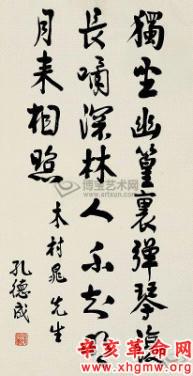 獨坐幽篁裏彈琴復
長嘯深林人不知明
月來相照
木村 先生
孔德成
博宝艺术网
辛亥革命网
www.xhgmw.org